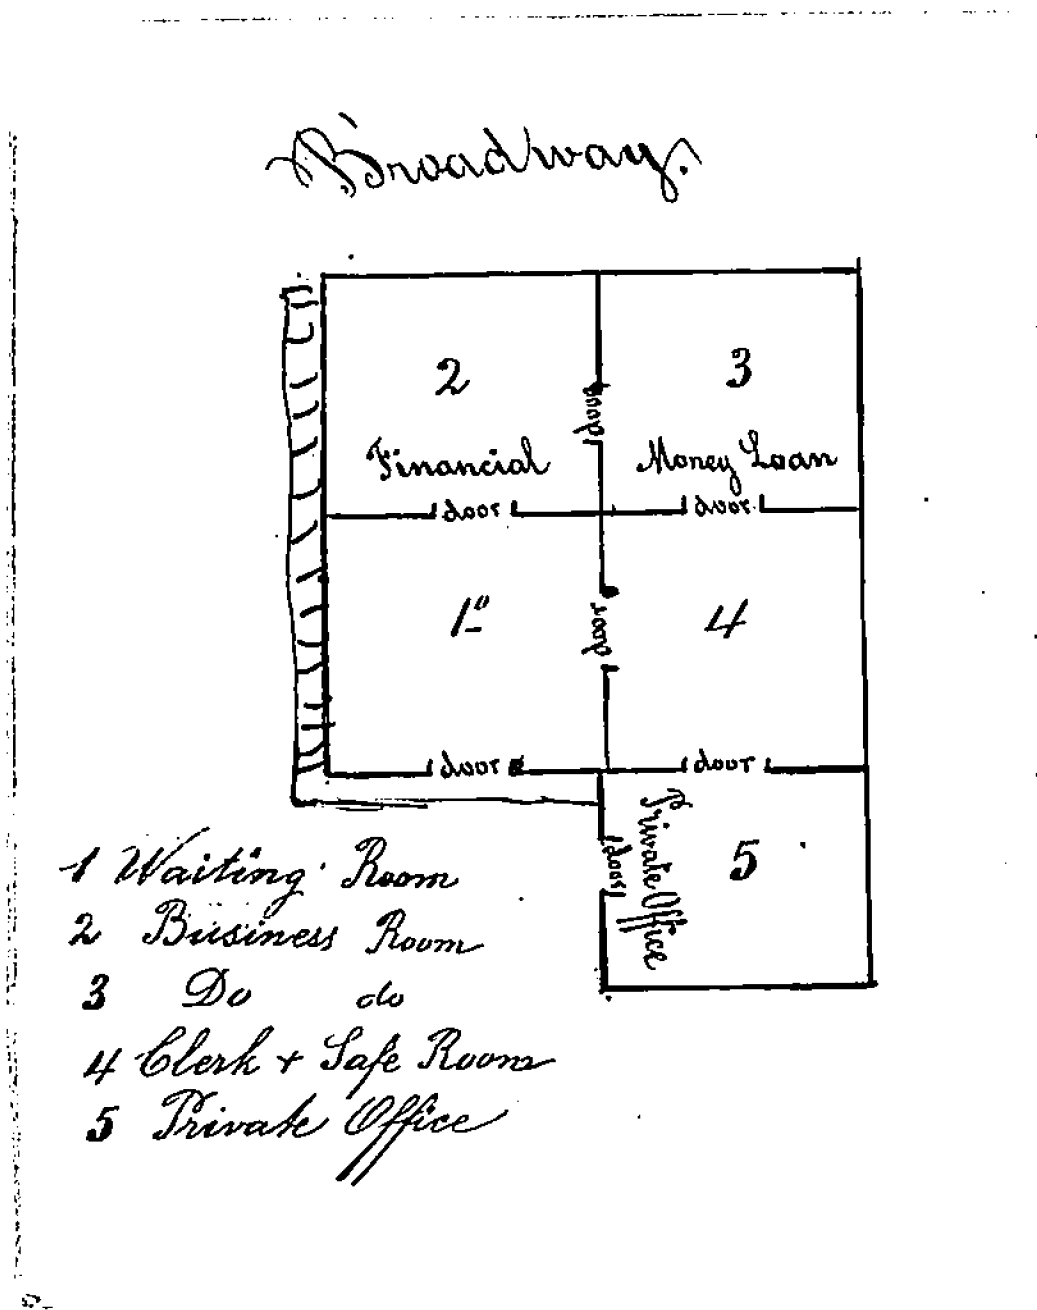 Broadway.
2
3
door
Financial
Money Loan
door
door
1º
4
door
door
door
Private Office
5
door
1 Waiting Room
2 Business Room
3 Do do
4 Clerk + Safe Room
5 Private Office